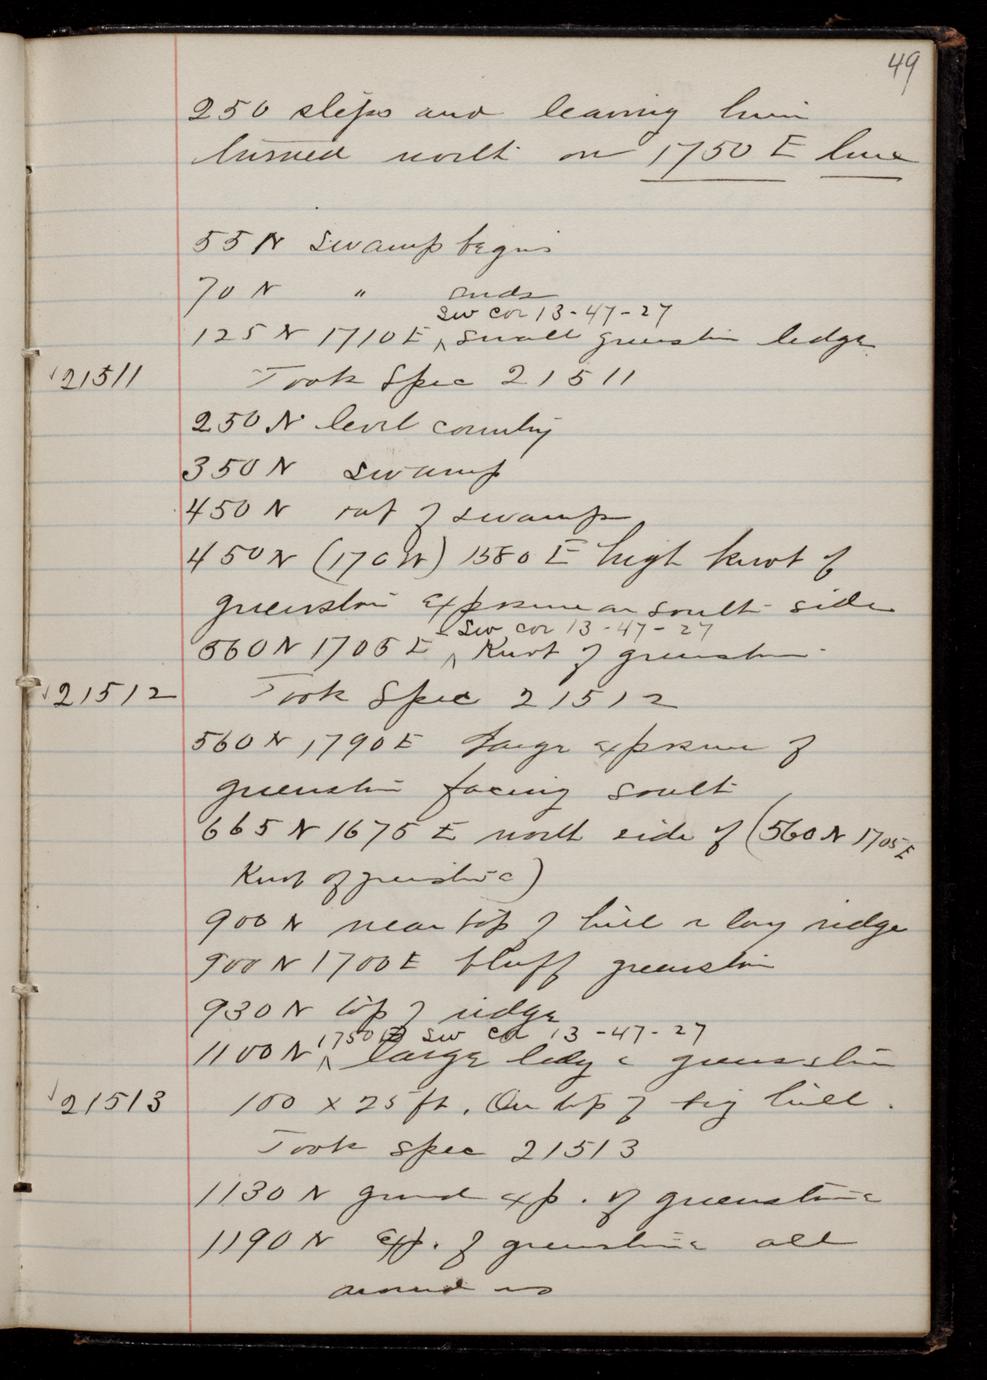 49
250 steps and leaving him
turned north on 1750 E line
55 N Swamp begins
70 N " ends
SW cor 13-47-27
125 N 1710 E ^ Small greenstone ledge
21511 Took Spec 21511
250 N level country
350 N swamp
450 N out of swamp
450 N (170 W) 1580 E high knob of
greenstone exposure on south side
SW cor 13-47-27
560 N 1705 E ^ Knob of greenstone
21512 Took Spec 21512
560 N 1790 E Large exposure of
greenstone facing south
665 N 1675 E north side of (560 N 1705 E
Knob of greenstone)
900 N near top of hill a long ridge
900 N 1700 E bluff greenstone
930 N top of ridge
1750 E SW cor 13-47-27
1100 N ^ large ledge greenstone
21513 100 x 25 ft. On top of big hill.
Took spec 21513
1130 N grand exp. of greenstone
1190 N Exp. of greenstone all
around us